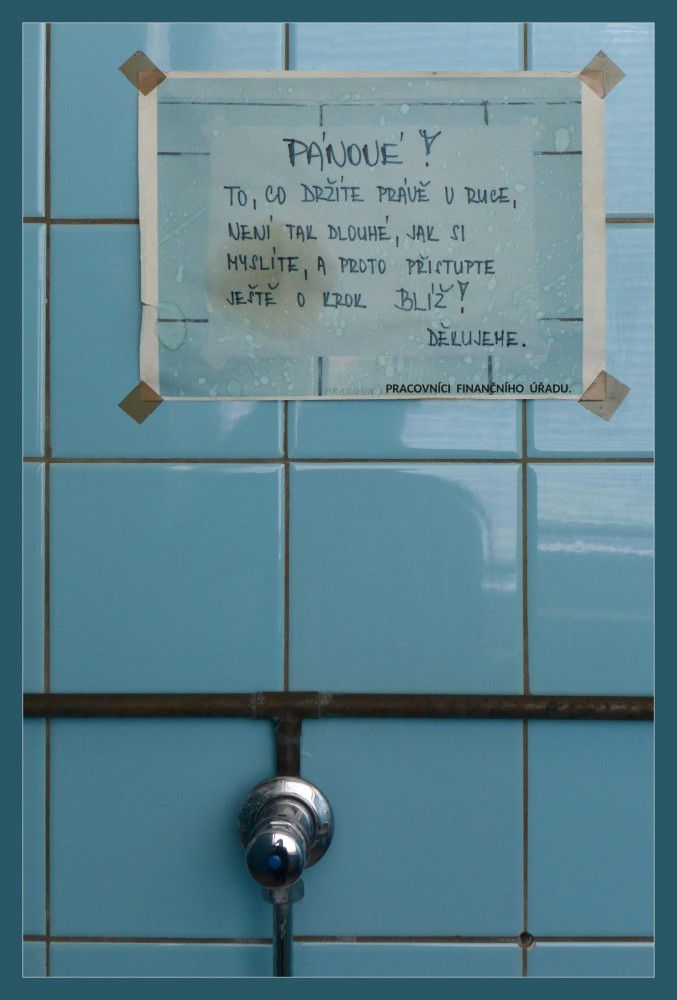 PÁNOVÉ!
TO, CO DRŽÍTE PRÁVĚ V RUCE,
NENÍ TAK DLOUHÉ, JAK SI
MYSLÍTE, A PROTO PŘISTUPTE
JEŠTĚ O KROK BLÍŽ!
DĚKUJEME.
PRACOVNÍCI FINANČNÍHO ÚŘADU.